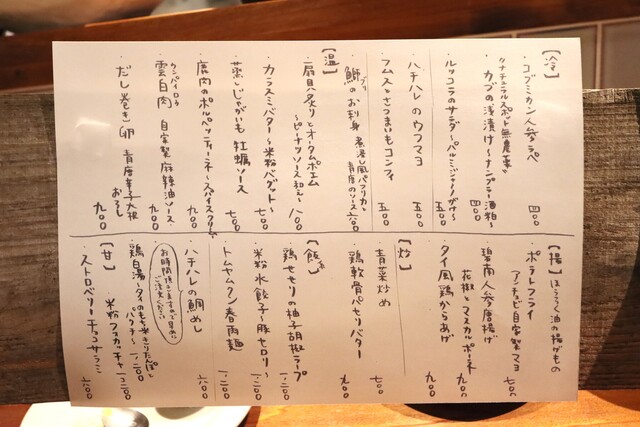 【冷】
・コブミカン人参ラペ 四〇〇
・ナチュラルスポット無農薬
カブの浅漬け〜ナンプラー酒粕〜 四〇〇
・ルッコラのサラダ〜パルミジャーノがけ〜 五〇〇
・ハチハレのウフマヨ 五〇〇
・フムスとさつまいもコンフィ 五〇〇
・鰤のお刺身
ブリ
青唐のソース 六〇〇
【温】
・扇貝炙りとオータムポエム
〜ピーナッツソース和え〜 八〇〇
・カラスミバター〜米粉バゲット〜 七〇〇
・蒸しじゃがいも 牡蠣ソース 七〇〇
・鹿肉のポルペッティーネ〜スパイスクリーム〜 九〇〇
ウンパイロウ
・雲白肉 自家製麻辣油ソース 九〇〇
・だし巻き卵 青唐辛子大根おろし 九〇〇
【揚】ほうろく油の揚げもの
・ポテトフライ
アンチョビ自家製マヨ 七〇〇
・碧南人参唐揚げ
花椒とマスカルポーネ 九〇〇
・タイ風鶏からあげ 九〇〇
【炒】
・青菜炒め 七〇〇
・鶏軟骨パセリバター 九〇〇
【飯】
・鶏せせりの柚子胡椒ラープ 一、二〇〇
・米粉水餃子〜豚セロリ〜 一、二〇〇
・トムヤムクン春雨麺 一、二〇〇
・ハチハレの鯛めし 六〇〇
お時間頂きますので早めにご注文ください
・鶏白湯〜タイのもち米きりたんぽとパクチー〜 一、二〇〇
米粉フォカッチャ
【甘】
・ストロベリーチョコサラミ 六〇〇